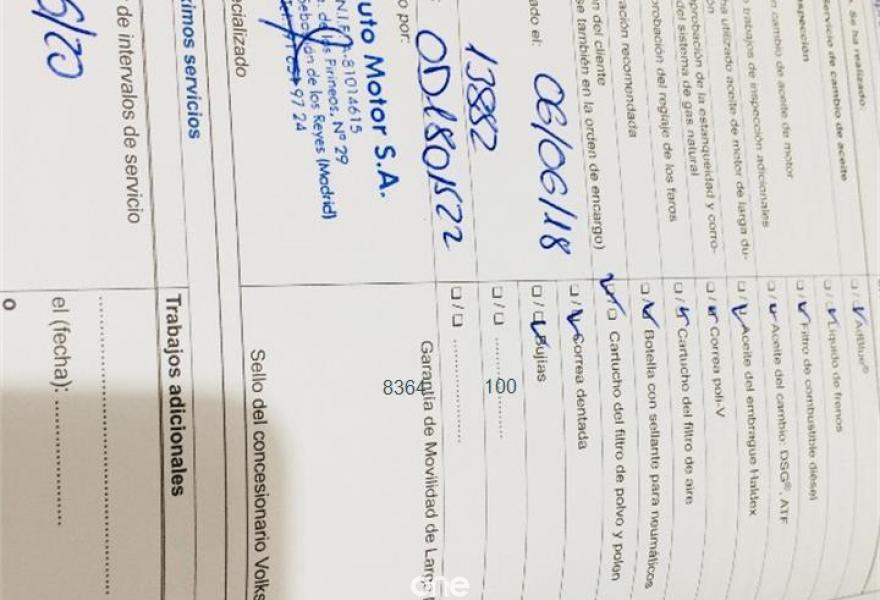 . Se ha realizado:
servicio de cambio de aceite
spección
n cambio de aceite de motor
trabajos de inspección adicionales
ha utilizado aceite de motor de larga du-
ón
probación de la estanqueidad y corro-
del sistema de gas natural
probación del reglaje de los faros
ación recomendada
ón del cliente
se también en la orden de encargo)
ado el:
06/06/18
13882
o por:
OD1801522
uto Motor S.A.
N.I.F. A-81014615
de los Pirineos, Nº 29
Sebastián de los Reyes (Madrid)
97 24
ecializado
ximos servicios
r de intervalos de servicio
6/20
AdBlue®
Líquido de frenos
Filtro de combustible diésel
Aceite del cambio: DSG®, ATF
Aceite del embrague Haldex
Correa poli-V
Cartucho del filtro de aire
Botella con sellante para neumáticos
Cartucho del filtro de polvo y polen
Correa dentada
Bujías
100
8364
Garantía de Movilidad de Larga
Sello del concesionario Volks
Trabajos adicionales
el (fecha):
o
one